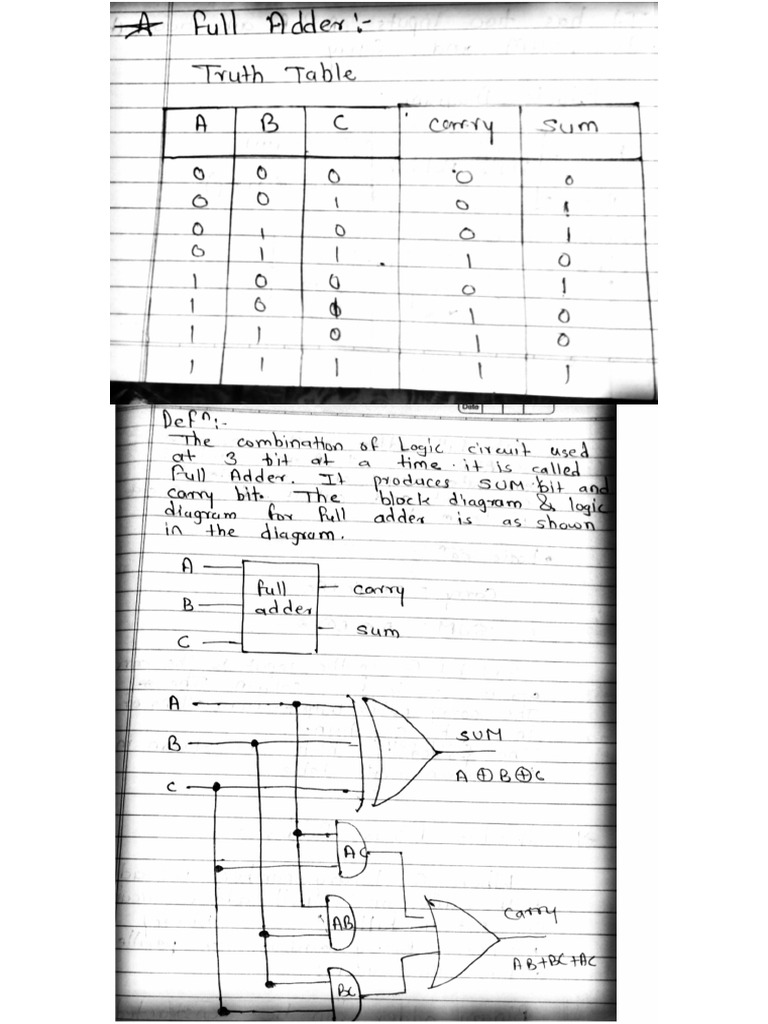 A Full Adder:-
Truth Table
A B C Carry Sum
0 0 0 0 0
0 0 1 0 1
0 1 0 0 1
0 1 1 1 0
1 0 0 0 1
1 0 1 1 0
1 1 0 1 0
1 1 1 1 1
Date
Defn:-
The combination of Logic circuit used
at 3 bit at a time. it is called
Full Adder. It produces SUM bit and
carry bit. The block diagram & logic
diagram for full adder is as shown
in the diagram.
A
full
carry
B
adder
sum
C
A
SUM
B
A ⊕ B ⊕ C
C
AC
carry
AB
AB+BC+AC
BC